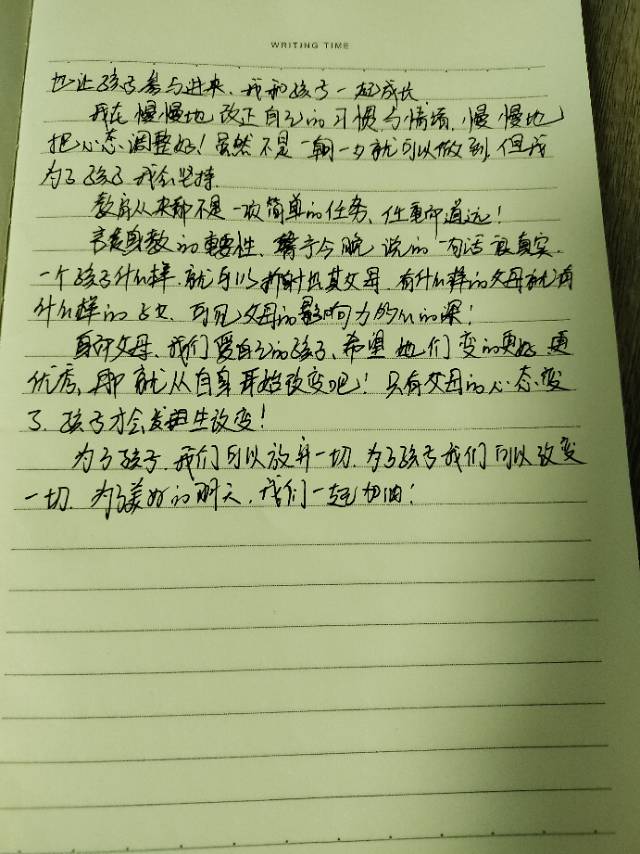 WRITING TIME
也让孩子参与进来，我和孩子一起成长
我在慢慢地改正自己的习惯与情绪，慢慢地
把心态调整好！虽然不是一朝一夕就可以做到，但我
为了孩子我会坚持
教育从来都不是一次简单的任务、任重而道远！
言传身教的重要性、今晚说的一句话很真实
一个孩子什么样，就可以折射出其父母，有什么样的父母就有
什么样的子女，可见父母的影响力的深！
身而父母、我们爱自己的孩子、希望他们变的更好更
优秀，那就从自身开始改变吧！只有父母的心态变
了，孩子才会发生改变！
为了孩子，我们可以放弃一切，为了孩子我们可以改变
一切，为了美好的明天，我们一起加油！